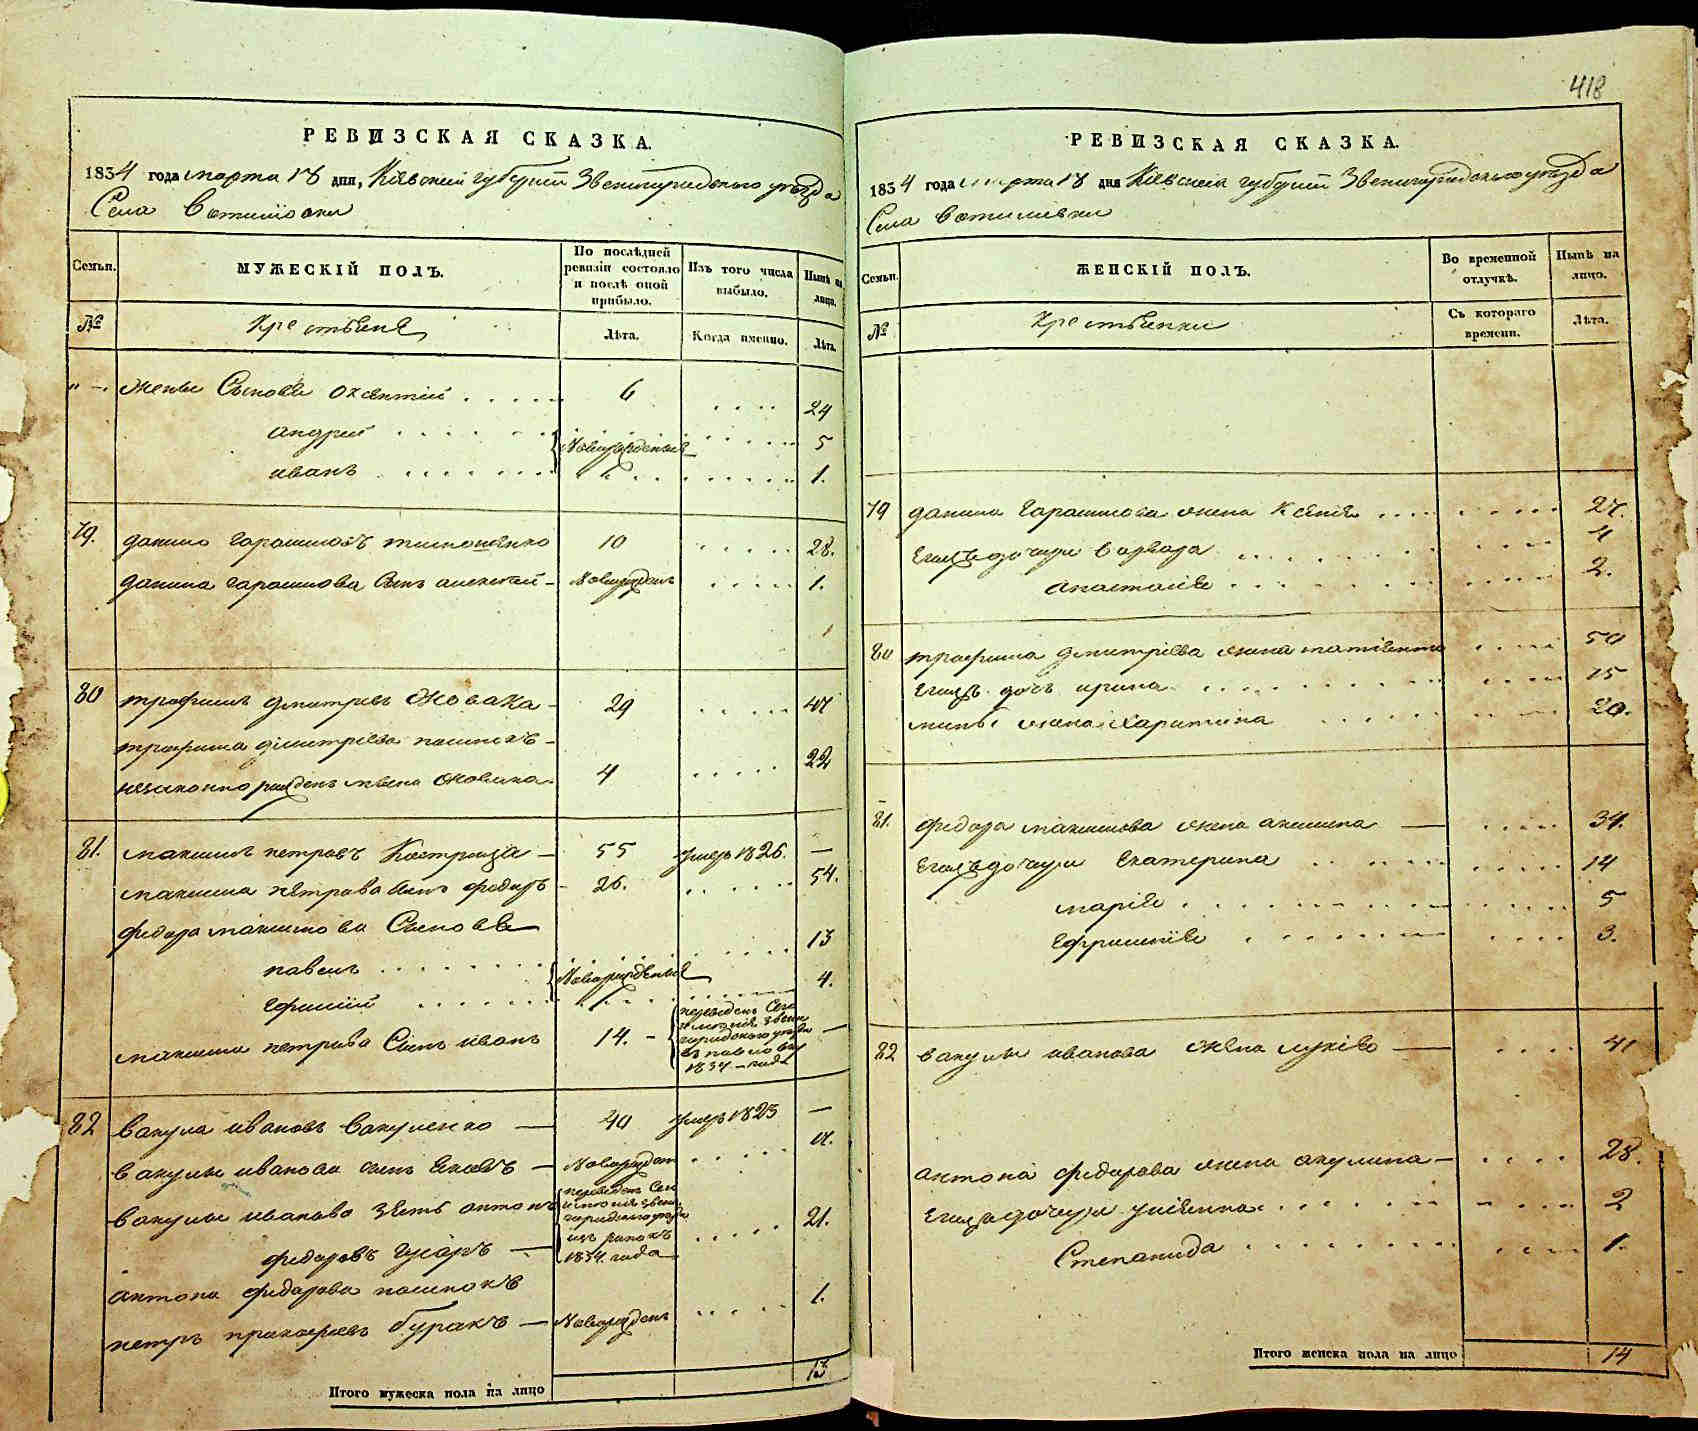 418
РЕВИЗСКАЯ СКАЗКА.
1834 года марта 18 дня, Кіевской губерніи Звенигородскаго уѣзда
Села
Семьи.
МУЖЕСКІЙ ПОЛЪ.
По послѣдней ревизіи состояло и послѣ оной прибыло.
Изъ того числа выбыло.
Нынѣ на лицо.
№
Крестьяне
Лѣта.
Когда именно.
Лѣта.
" Сыновья 6 24
андрей Новорожденные 5
иванъ 1.
79. данило гарасимовъ 10 28.
данила гарасимова Сынъ алексей Новорожденъ 1.
80 трофимъ дмитревъ 29 47
трофима дмитріева пасинокъ
незаконно рожденъ 4 22
81. максимъ петровъ 55 умеръ 1826. —
максима петрова Сынъ федоръ 26. 54.
федора максимова Сыновья
павелъ Новорожденные 13
ефимій 4.
максима петрова Сынъ иванъ 14. переведенъ 1834 года —
82 вакула ивановъ вакуленко 40 умеръ 1825 —
вакулы иванова сынъ Яковъ Новорожден
вакулы иванова зять антонъ переведенъ
федоровъ гусаръ 1834 года 21.
антона федорова пасинокъ
петръ буракъ Новорожденъ 1.
Итого мужеска пола на лицо 13
РЕВИЗСКАЯ СКАЗКА.
1834 года марта 18 дня Кіевской губерніи Звенигородскаго уѣзда
Села
Семьи.
ЖЕНСКІЙ ПОЛЪ.
Во временной отлучкѣ.
Нынѣ на лицо.
№
Крестьянки
Съ котораго времени.
Лѣта.
79 данила гарасимова жена Ксенія 27.
Егожъ дочери варвара 4
анастасія 2.
80 трофима дмитріева жена 50
Егожъ дочь ирина 15
жена харитина 20.
81. федора максимова жена акилина 34.
Егожъ дочери Екатерина 14
марія 5
Ефросинія 3.
82 вакулы иванова жена 41
антона федорова жена акулина 28.
Егожъ дочери 2
Степанида 1.
Итого женска пола на лицо 14